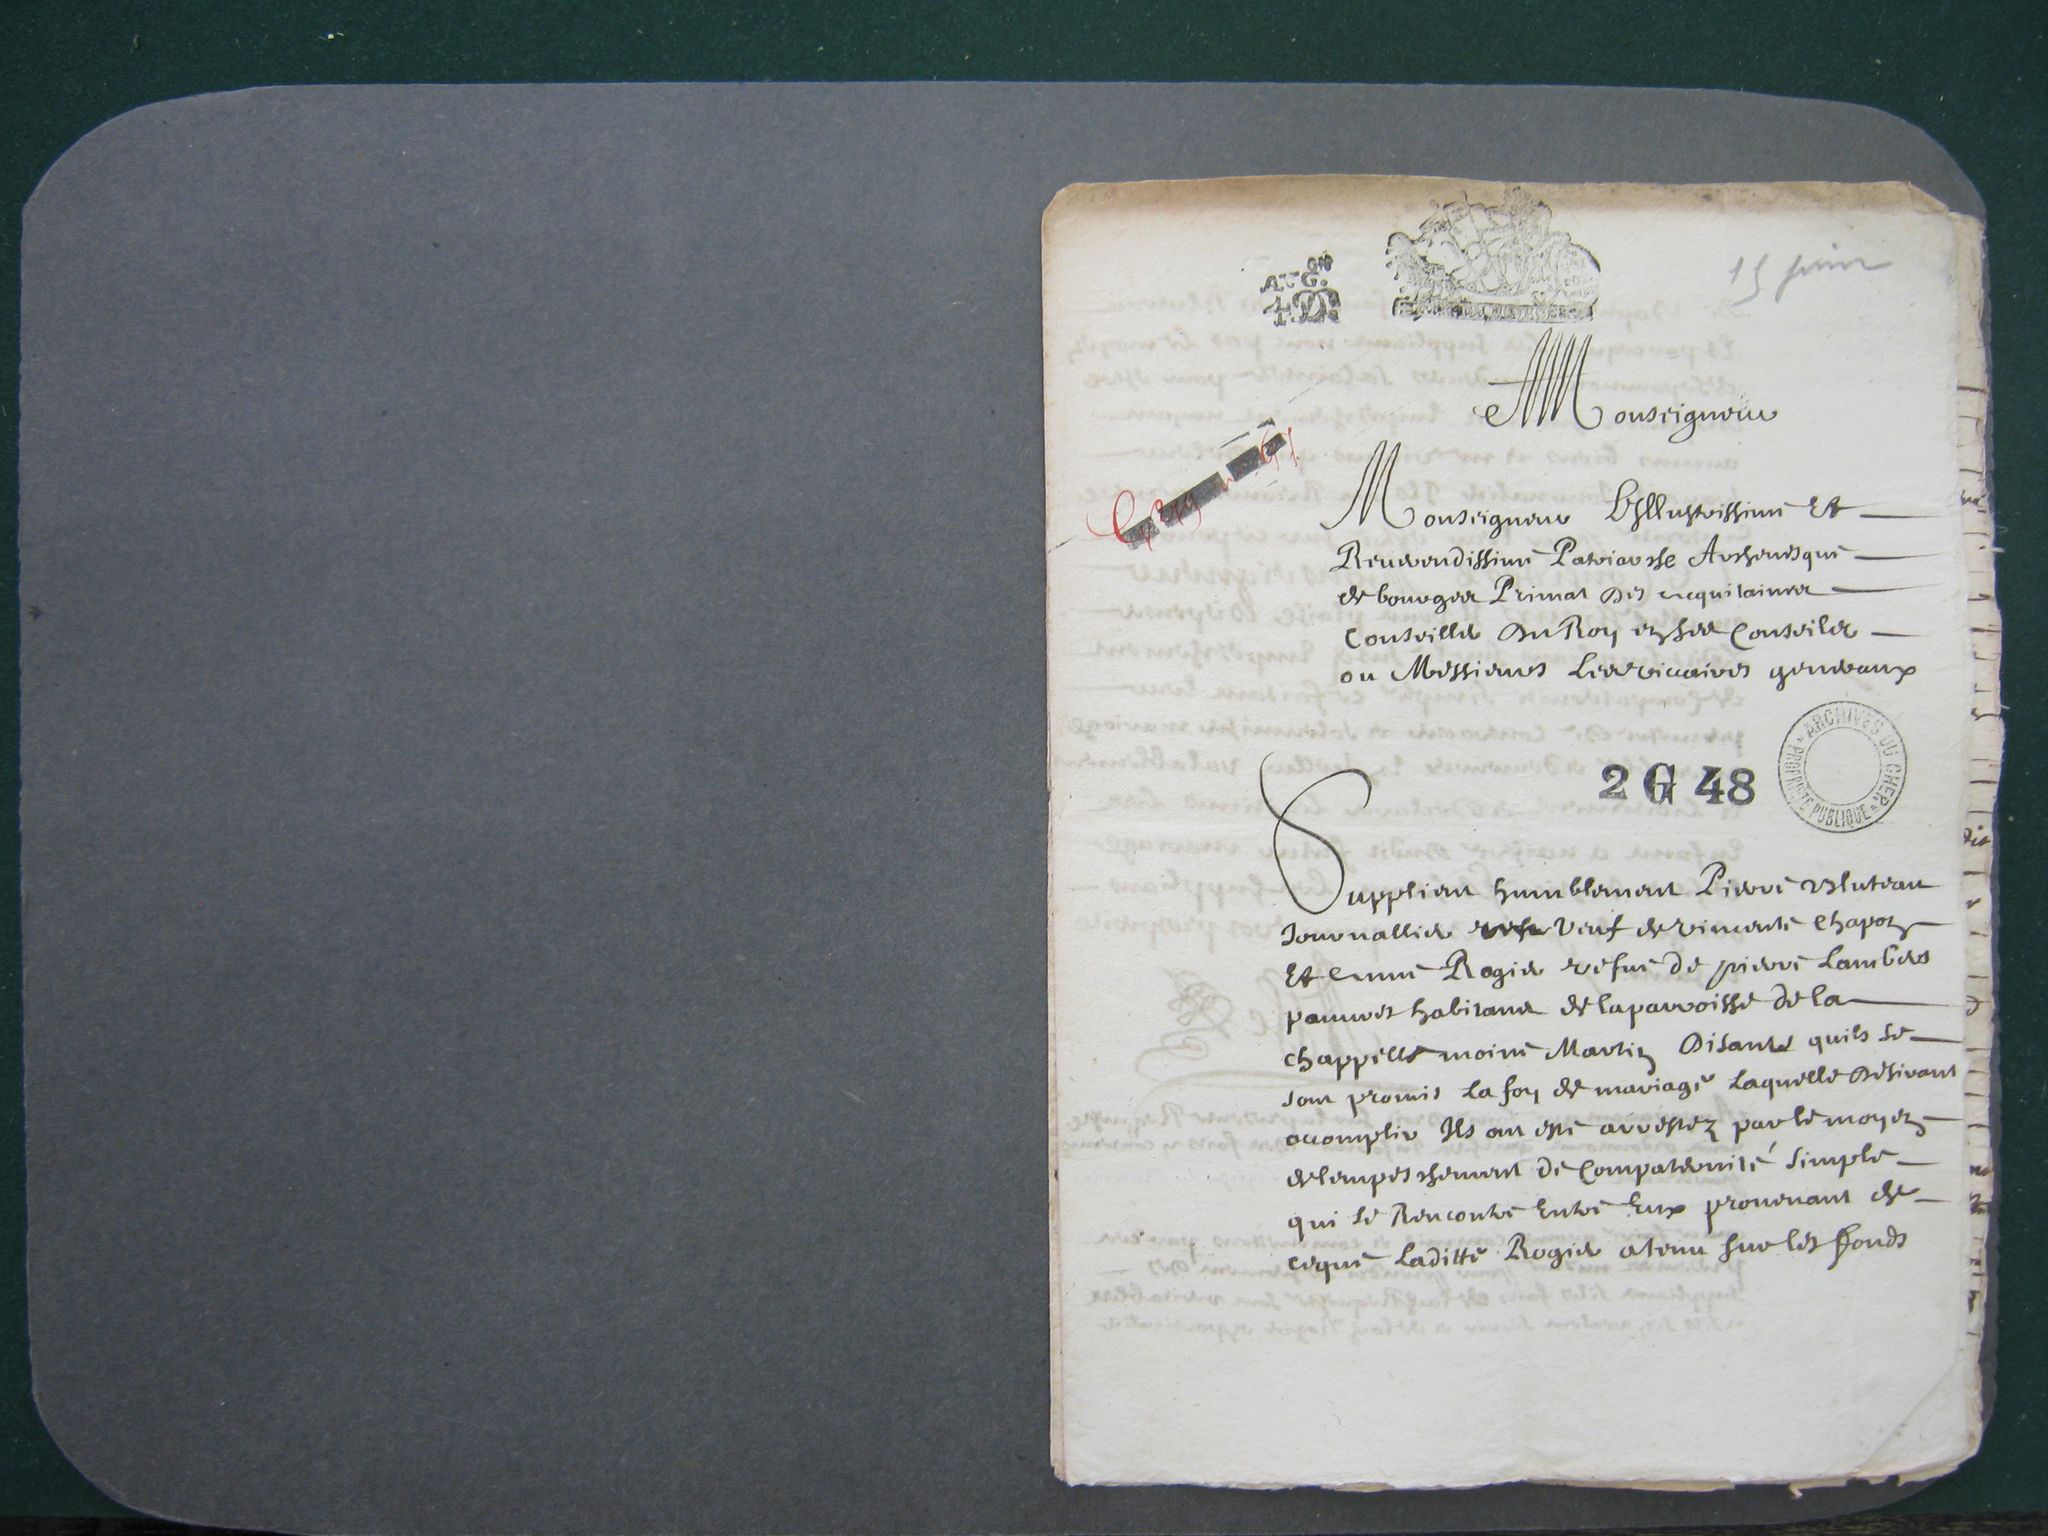 15 juin
AUG. ON
4 D.
A Monseigneur
Monseigneur L'Illustrissime Et
Reverendissime Patriarche Archevesque
de bourges Primat Des acquitaines
Conseiller Du Roy en ses Conseils
ou Messieurs Les viccaires generaux
ARCHIVES DU CHER
PROPRIETE PUBLIQUE
2 G 48
Supplient humblement Pierre Bluteau
Journallier veuf de vincente Chapoy
Et Anne Rogier vefue de pierre Lambert
pauures habitans de la parroisse de la
chappelle moine Martin Disants quils se
sont promis La foy de mariage Laquelle Desirant
acomplir Ils ont esté arrestez par le moyen
de lempeschement de Compaternité simple
qui se Rencontre Entre Eux prouenant de
ceque Laditte Rogier a tenu sur les fonds